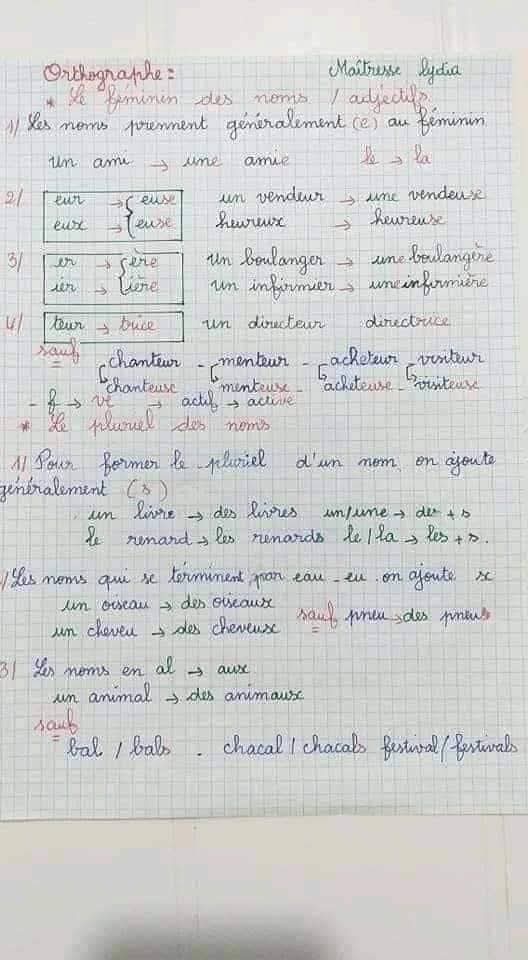 Orthographe : Maîtresse Lydia
* Le féminin des noms / adjectifs.
1/ Les noms prennent généralement (e) au féminin
un ami → une amie le → la
2/ eur → euse un vendeur → une vendeuse
eux → euse heureux → heureuse
3/ er → ère un boulanger → une boulangère
ier → ière un infirmier → une infirmière
4/ teur → trice un directeur directrice
sauf chanteur - menteur - acheteur - visiteur
chanteuse menteuse - acheteuse - visiteuse
- f → ve → actif → active
* Le pluriel des noms
1/ Pour former le pluriel d'un nom, on ajoute
généralement (s)
un livre → des livres un/une → des + s
le renard → les renards le/la → les + s.
/ Les noms qui se terminent par eau - eu on ajoute x
un oiseau → des oiseaux
un cheveu → des cheveux sauf pneu → des pneus
3/ Les noms en al → aux
un animal → des animaux
sauf
= bal / bals . chacal / chacals festival / festivals